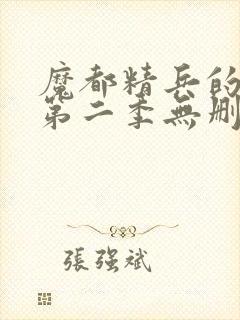 魔都精兵的
第二季無刪
張强斌